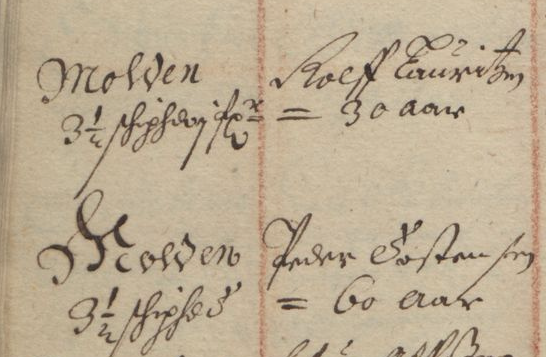 Molden Rolff Lauritzen
3½ schiphd = 30 aar
Molden Peder Tostensen
3½ schiphd = 60 aar